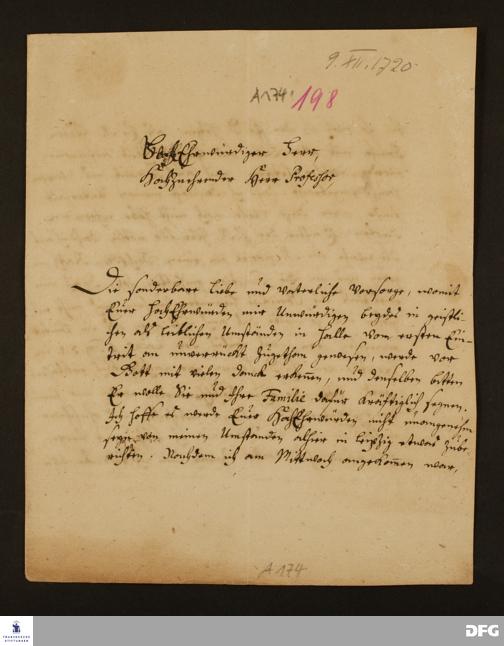 9. XII. 1720.
A 174 198
HochEhrwürdiger Herr,
Hochzuehrender Herr Professor,
Die sonderbare liebe und vaterliche Vorsorge, womit
Euer HochEhrwürden mir Unwürdigen beydes in geistli-
chen als leiblichen Umständen in Halle vom ersten Ein-
tritt an unverrückt zugethan gewesen, werde vor
Gott mit vielen danck erkennen, und denselben bitten
Er wolle Sie und Ihre Familie dafür kräfftiglich segnen.
Ich hoffe es werde Euer HochEhrwürden nicht unangenehm
seyn von meinen Umstanden alhier in Leipzig etwas zube-
richten. Nachdem ich am Mittwoch angekommen war,
A 174
FRANCKESCHE
STIFTUNGEN
DFG